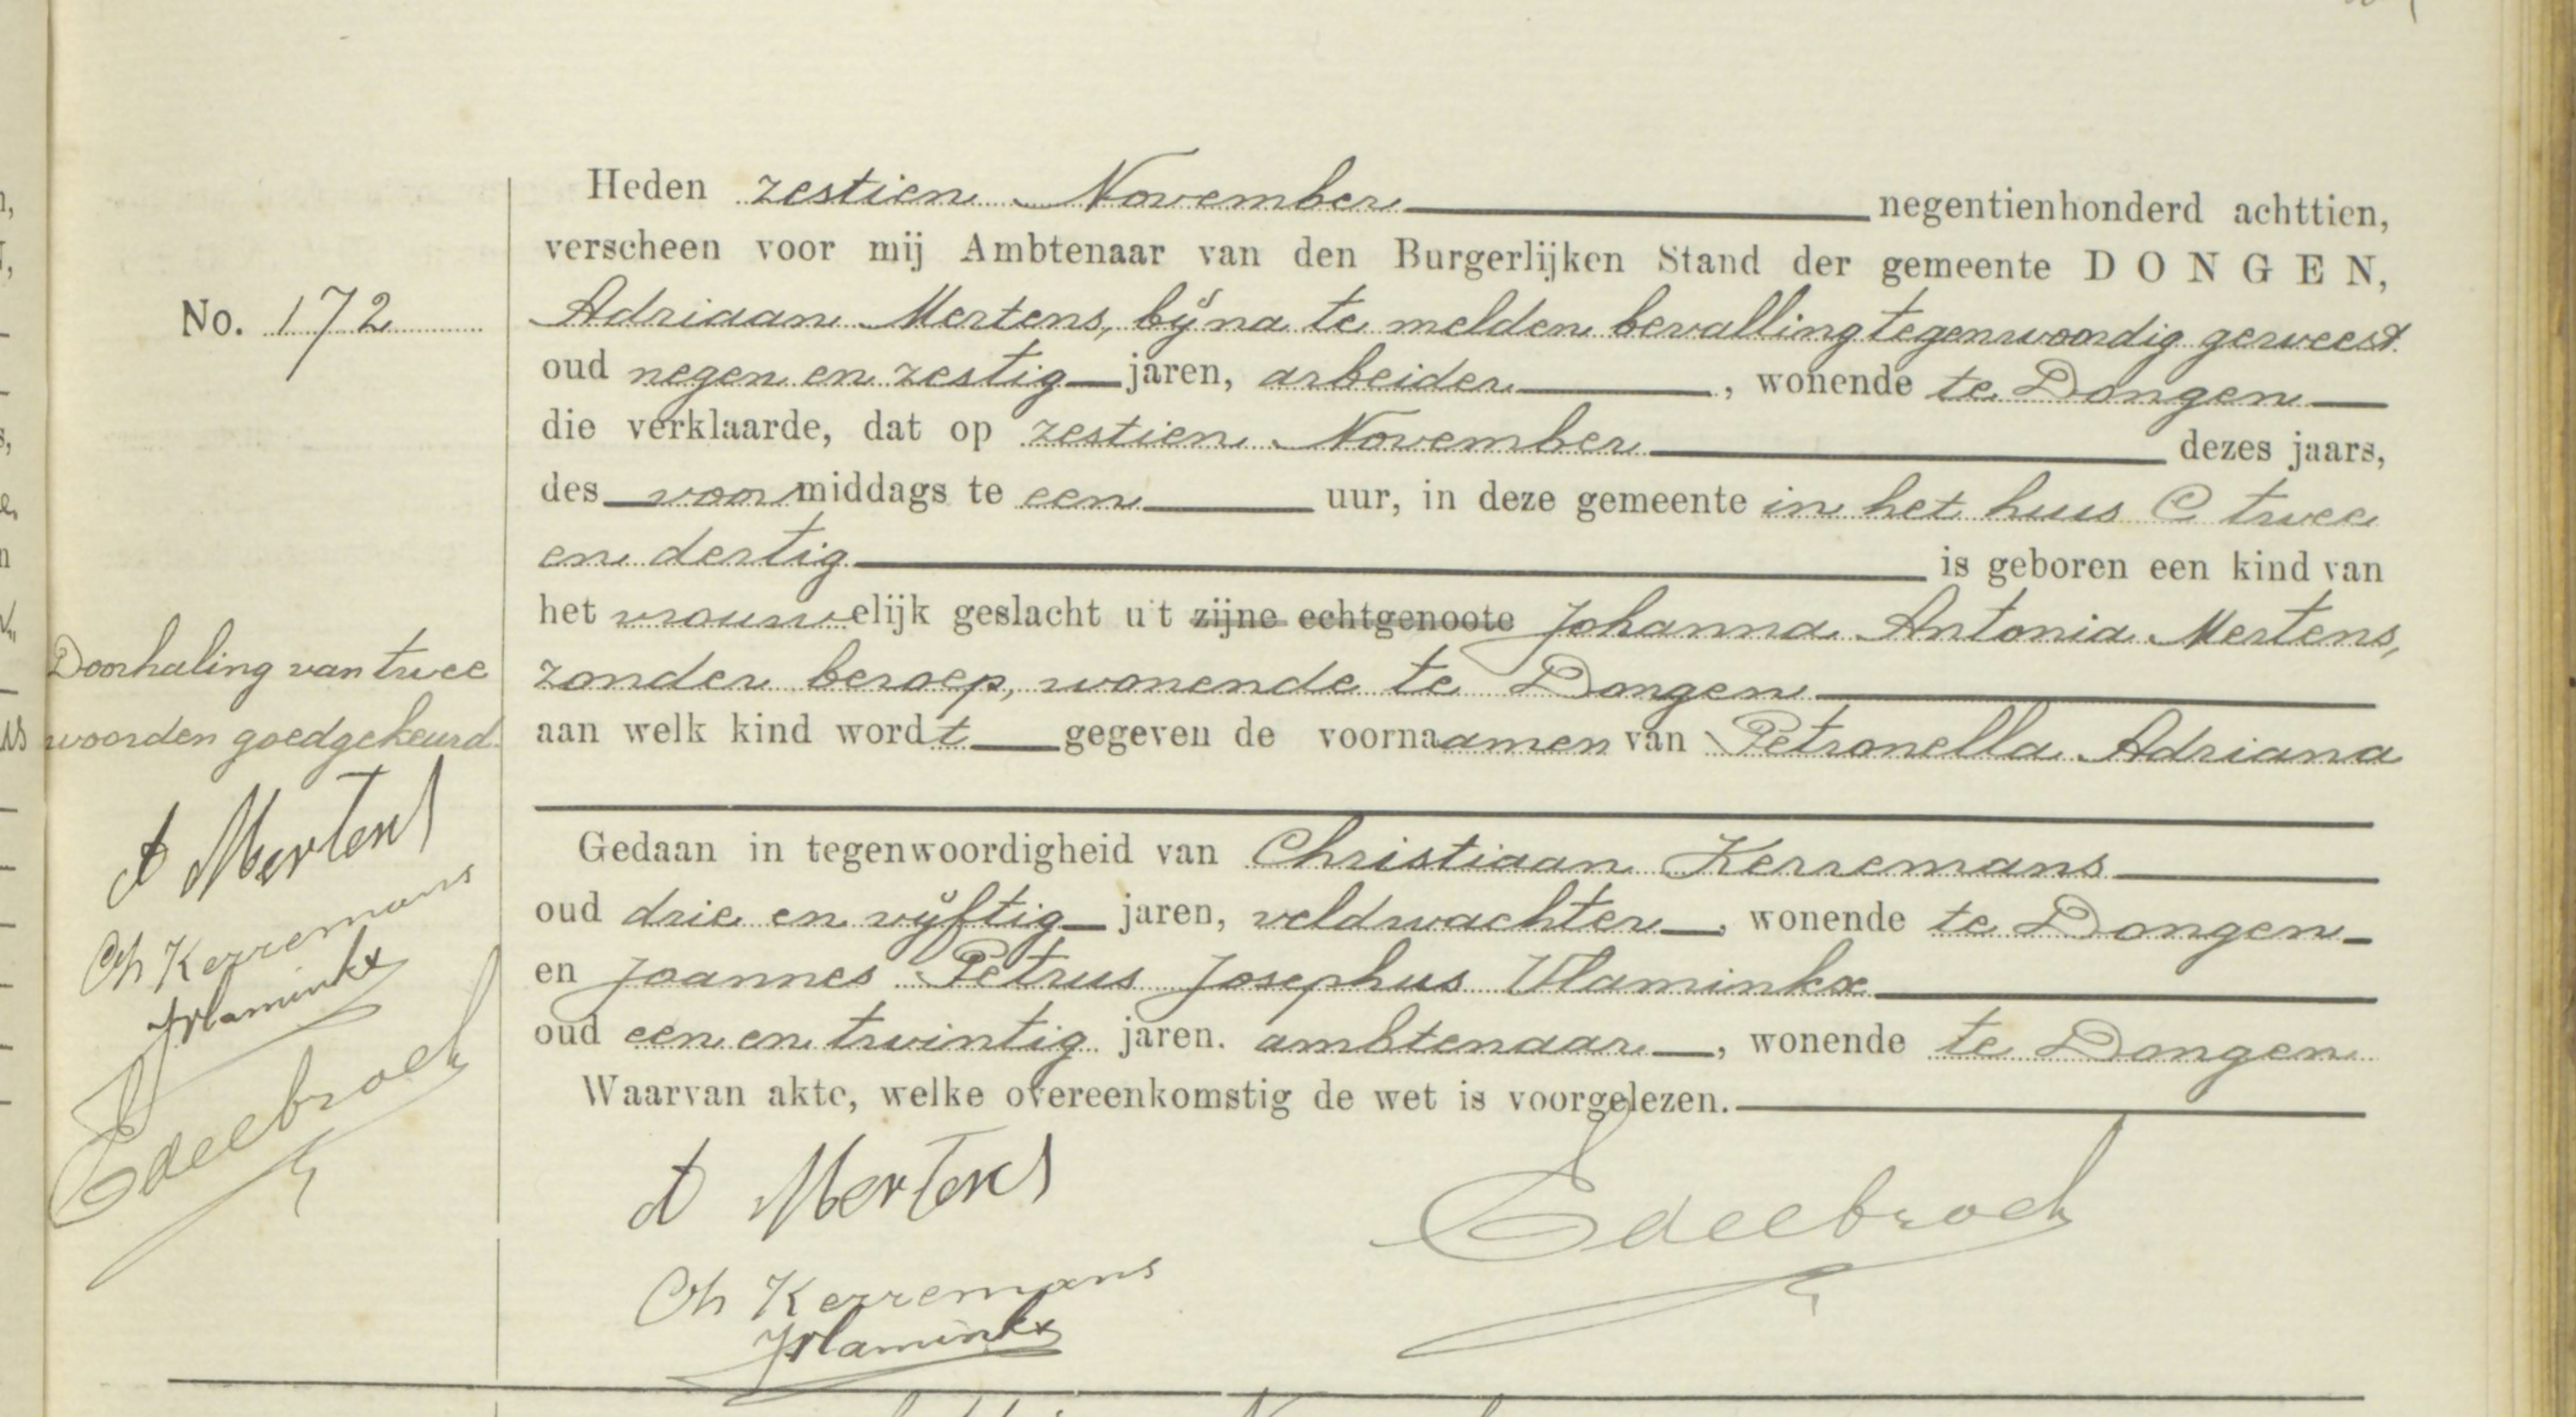 No. 172
Heden zestien November negentienhonderd achttien,
verscheen voor mij Ambtenaar van den Burgerlijken Stand der gemeente DONGEN,
Adriaan Mertens, bijna te melden bevalling tegenwoordig geweest
oud negen en zestig jaren, arbeider, wonende te Dongen
die verklaarde, dat op zestien November dezes jaars,
des voormiddags te een uur, in deze gemeente in het huis C twee
en dertig is geboren een kind van
het vrouwelijk geslacht uit zijne echtgenoote Johanna Antonia Mertens,
zonder beroep, wonende te Dongen
aan welk kind wordt gegeven de voornaamen van Petronella Adriana
Gedaan in tegenwoordigheid van Christiaan Kerremans
oud drie en vijftig jaren, veldwachter, wonende te Dongen
en Joannes Petrus Josephus Vlaminkx
oud een en twintig jaren. ambtenaar, wonende te Dongen
Waarvan akte, welke overeenkomstig de wet is voorgelezen.
A Mertens
Ch Kerremans
JVlaminkx
Edelbroek
Doorhaling van twee
woorden goedgekeurd.
A Mertens
Ch Kerremans
JVlaminkx
Edelbroek